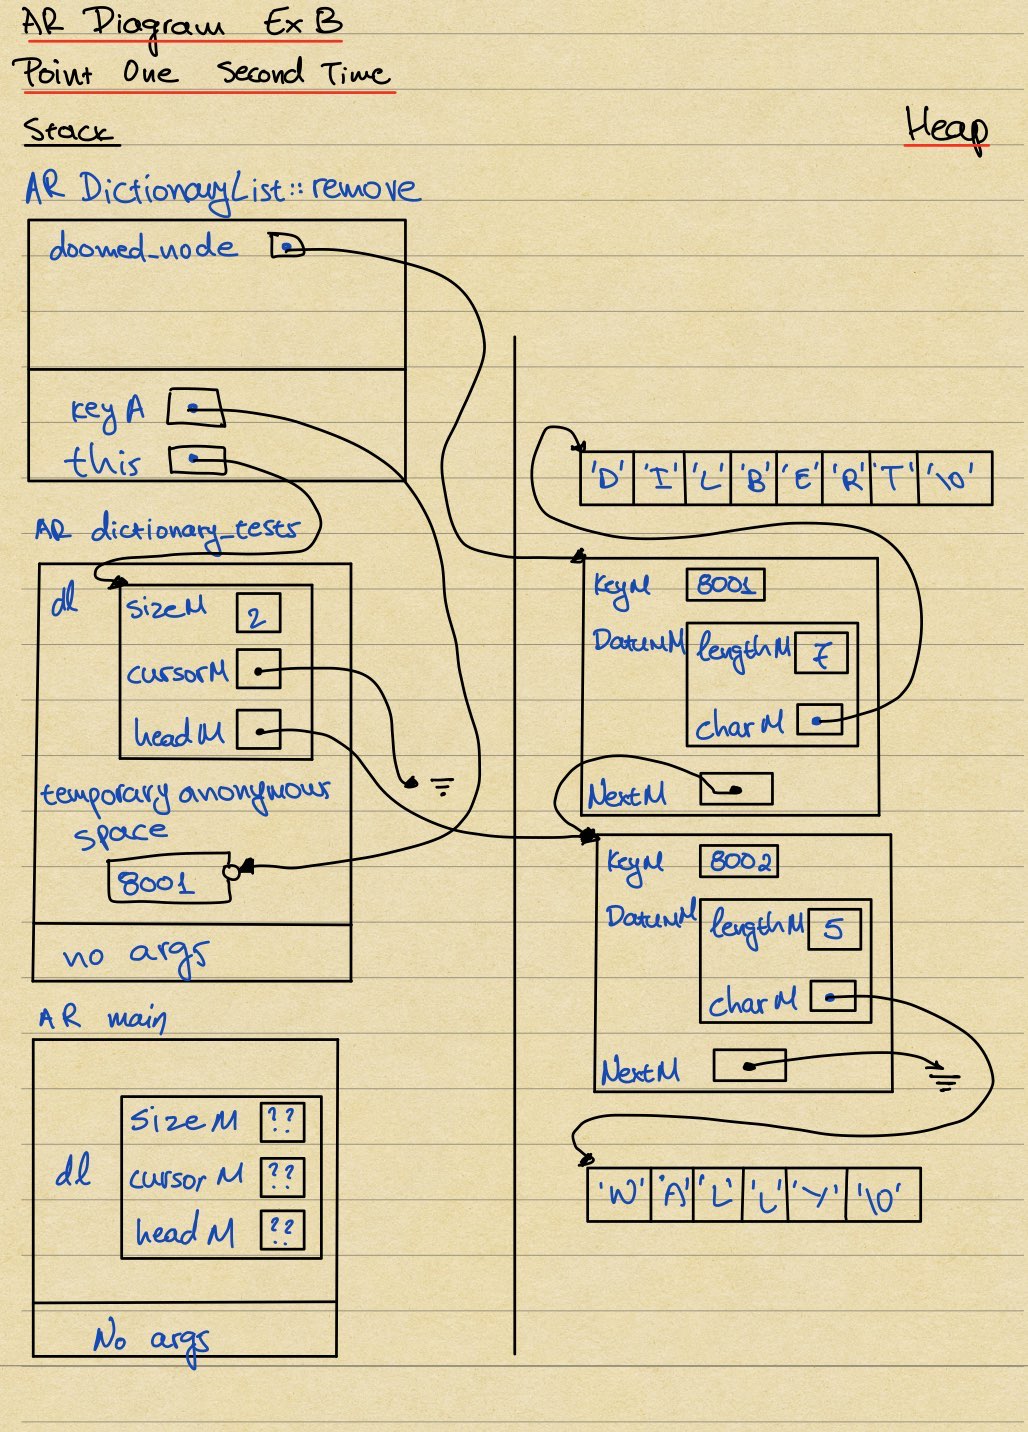 AR Diagram Ex B
Point One Second Time
Stack
Heap
AR DictionaryList::remove
doomed_node
keyA
this
AR dictionary_tests
dl
sizeM 2
cursorM
headM
temporary anonymous
space
8001
no args
AR main
dl
SizeM ??
cursorM ??
headM ??
No args
'D' 'I' 'L' 'B' 'E' 'R' 'T' '\0'
KeyM 8001
DatumM lengthM 7
charM
NextM
KeyM 8002
DatumM lengthM 5
charM
NextM
'W' 'A' 'L' 'L' 'Y' '\0'